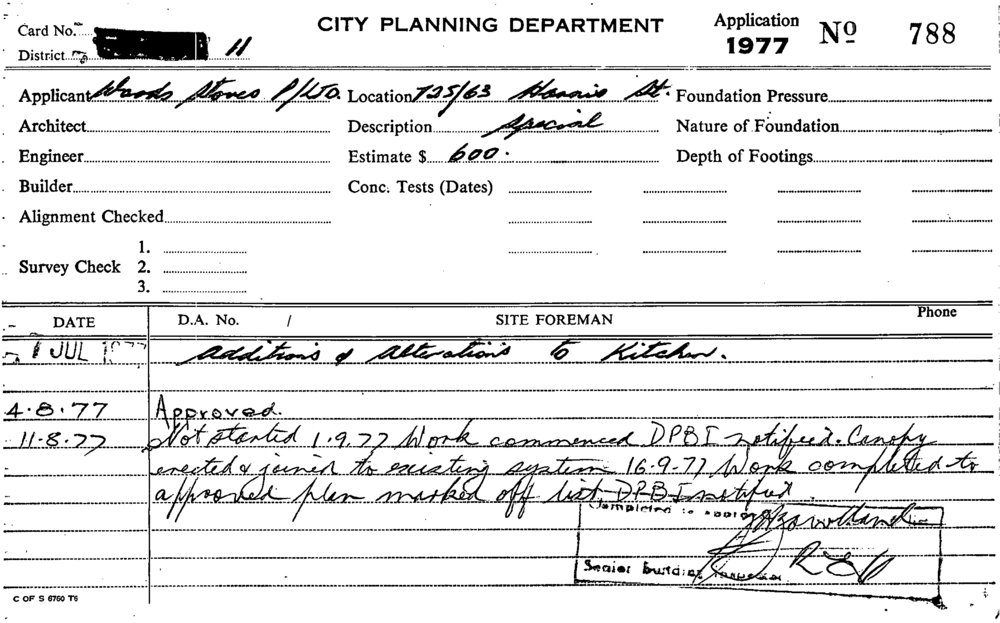 Card No.
CITY PLANNING DEPARTMENT
Application
1977
Nº 788
District H
Applicant Woods Stores P/LTD. Location 725/63 Harris St. Foundation Pressure
Architect Description Special Nature of Foundation
Engineer Estimate $ 600. Depth of Footings
Builder Conc. Tests (Dates)
Alignment Checked
Survey Check 1.
2.
3.
DATE D.A. No. / SITE FOREMAN Phone
1 JUL 1977 Additions & Alterations to Kitchen.
4.8.77 Approved.
11.8.77 Not started 1.9.77 Work commenced DPBI notified. Canopy
erected & joined to existing system 16.9.77 Work completed to
approved plan marked off list DPBI notified.
Completed to
Senior Building Inspector
C OF S 6760 T6